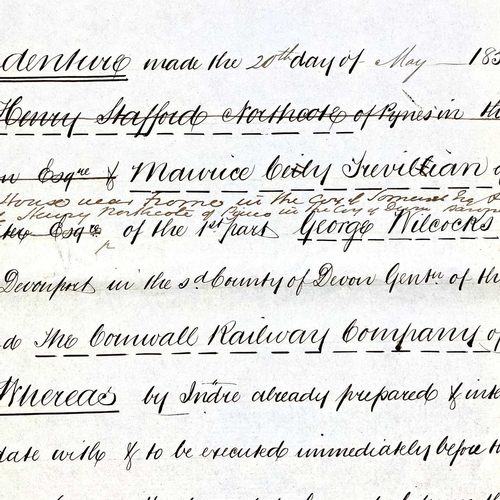 denture made the 20th day of May 185
Henry Stafford Northcote of Pynes in th
n Esqre & Maurice Ceily Trevillian o
House near Frome in the Coy of Somerset Esq &
Henry Northcote of Pynes in the Coy of Devon
Esqre of the 1st part George Wilcocks
Devonport in the sd County of Devon Gentn of th
d The Cornwall Railway Company of
Whereas by Indre already prepared & inte
date with & to be executed immediately before th